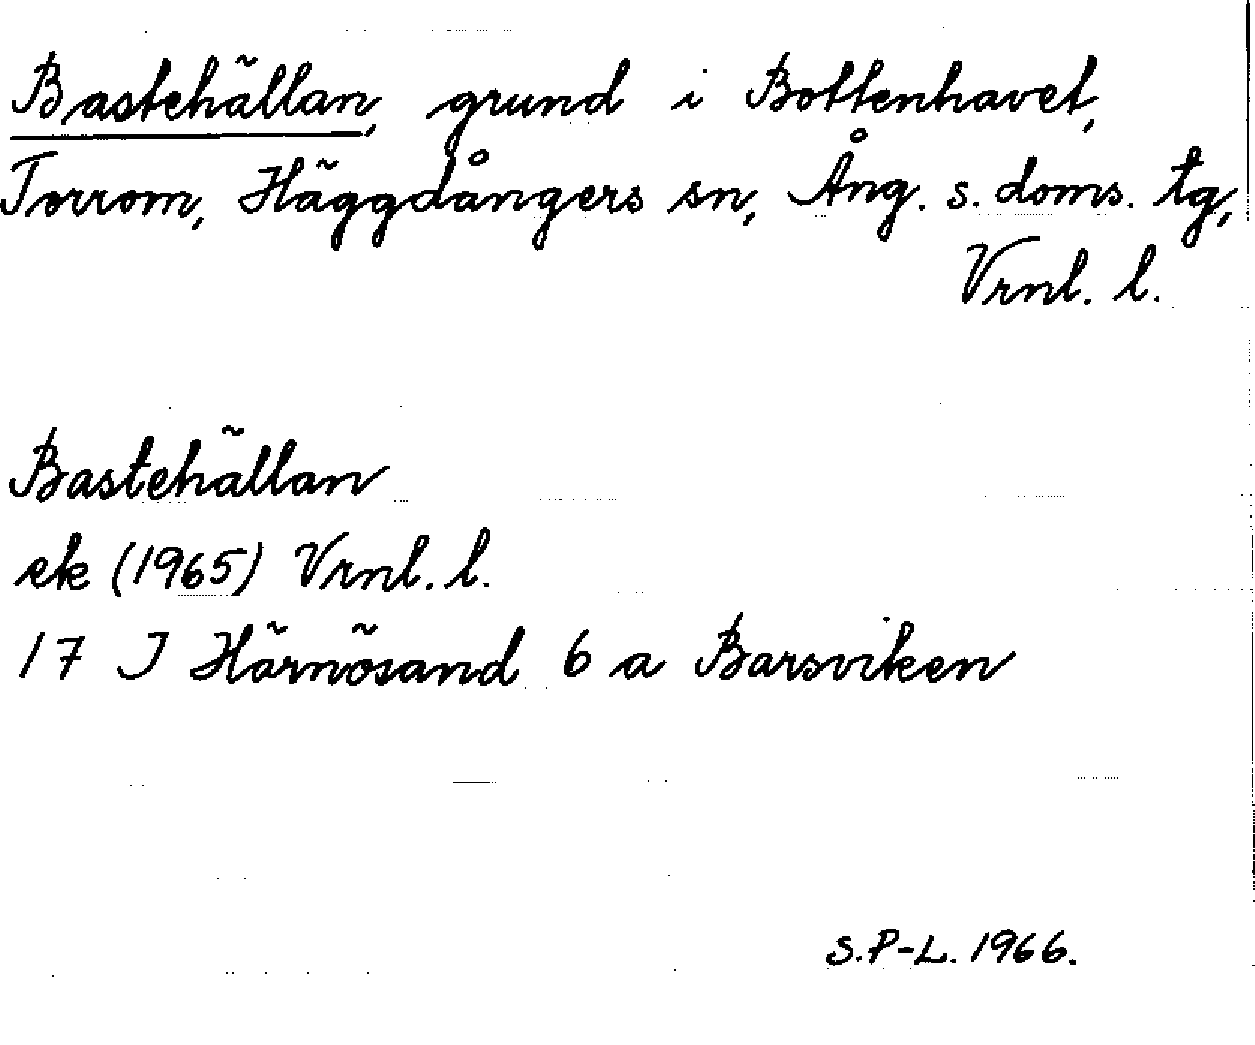 Bastehällan, grund i Bottenhavet,
Torrom, Häggdångers sn, Ång. s. doms. tg,
Vrnl. l.
Bastehällan
ek (1965) Vrnl. l.
17 I Härnösand 6 a Barsviken
S.P-L. 1966.